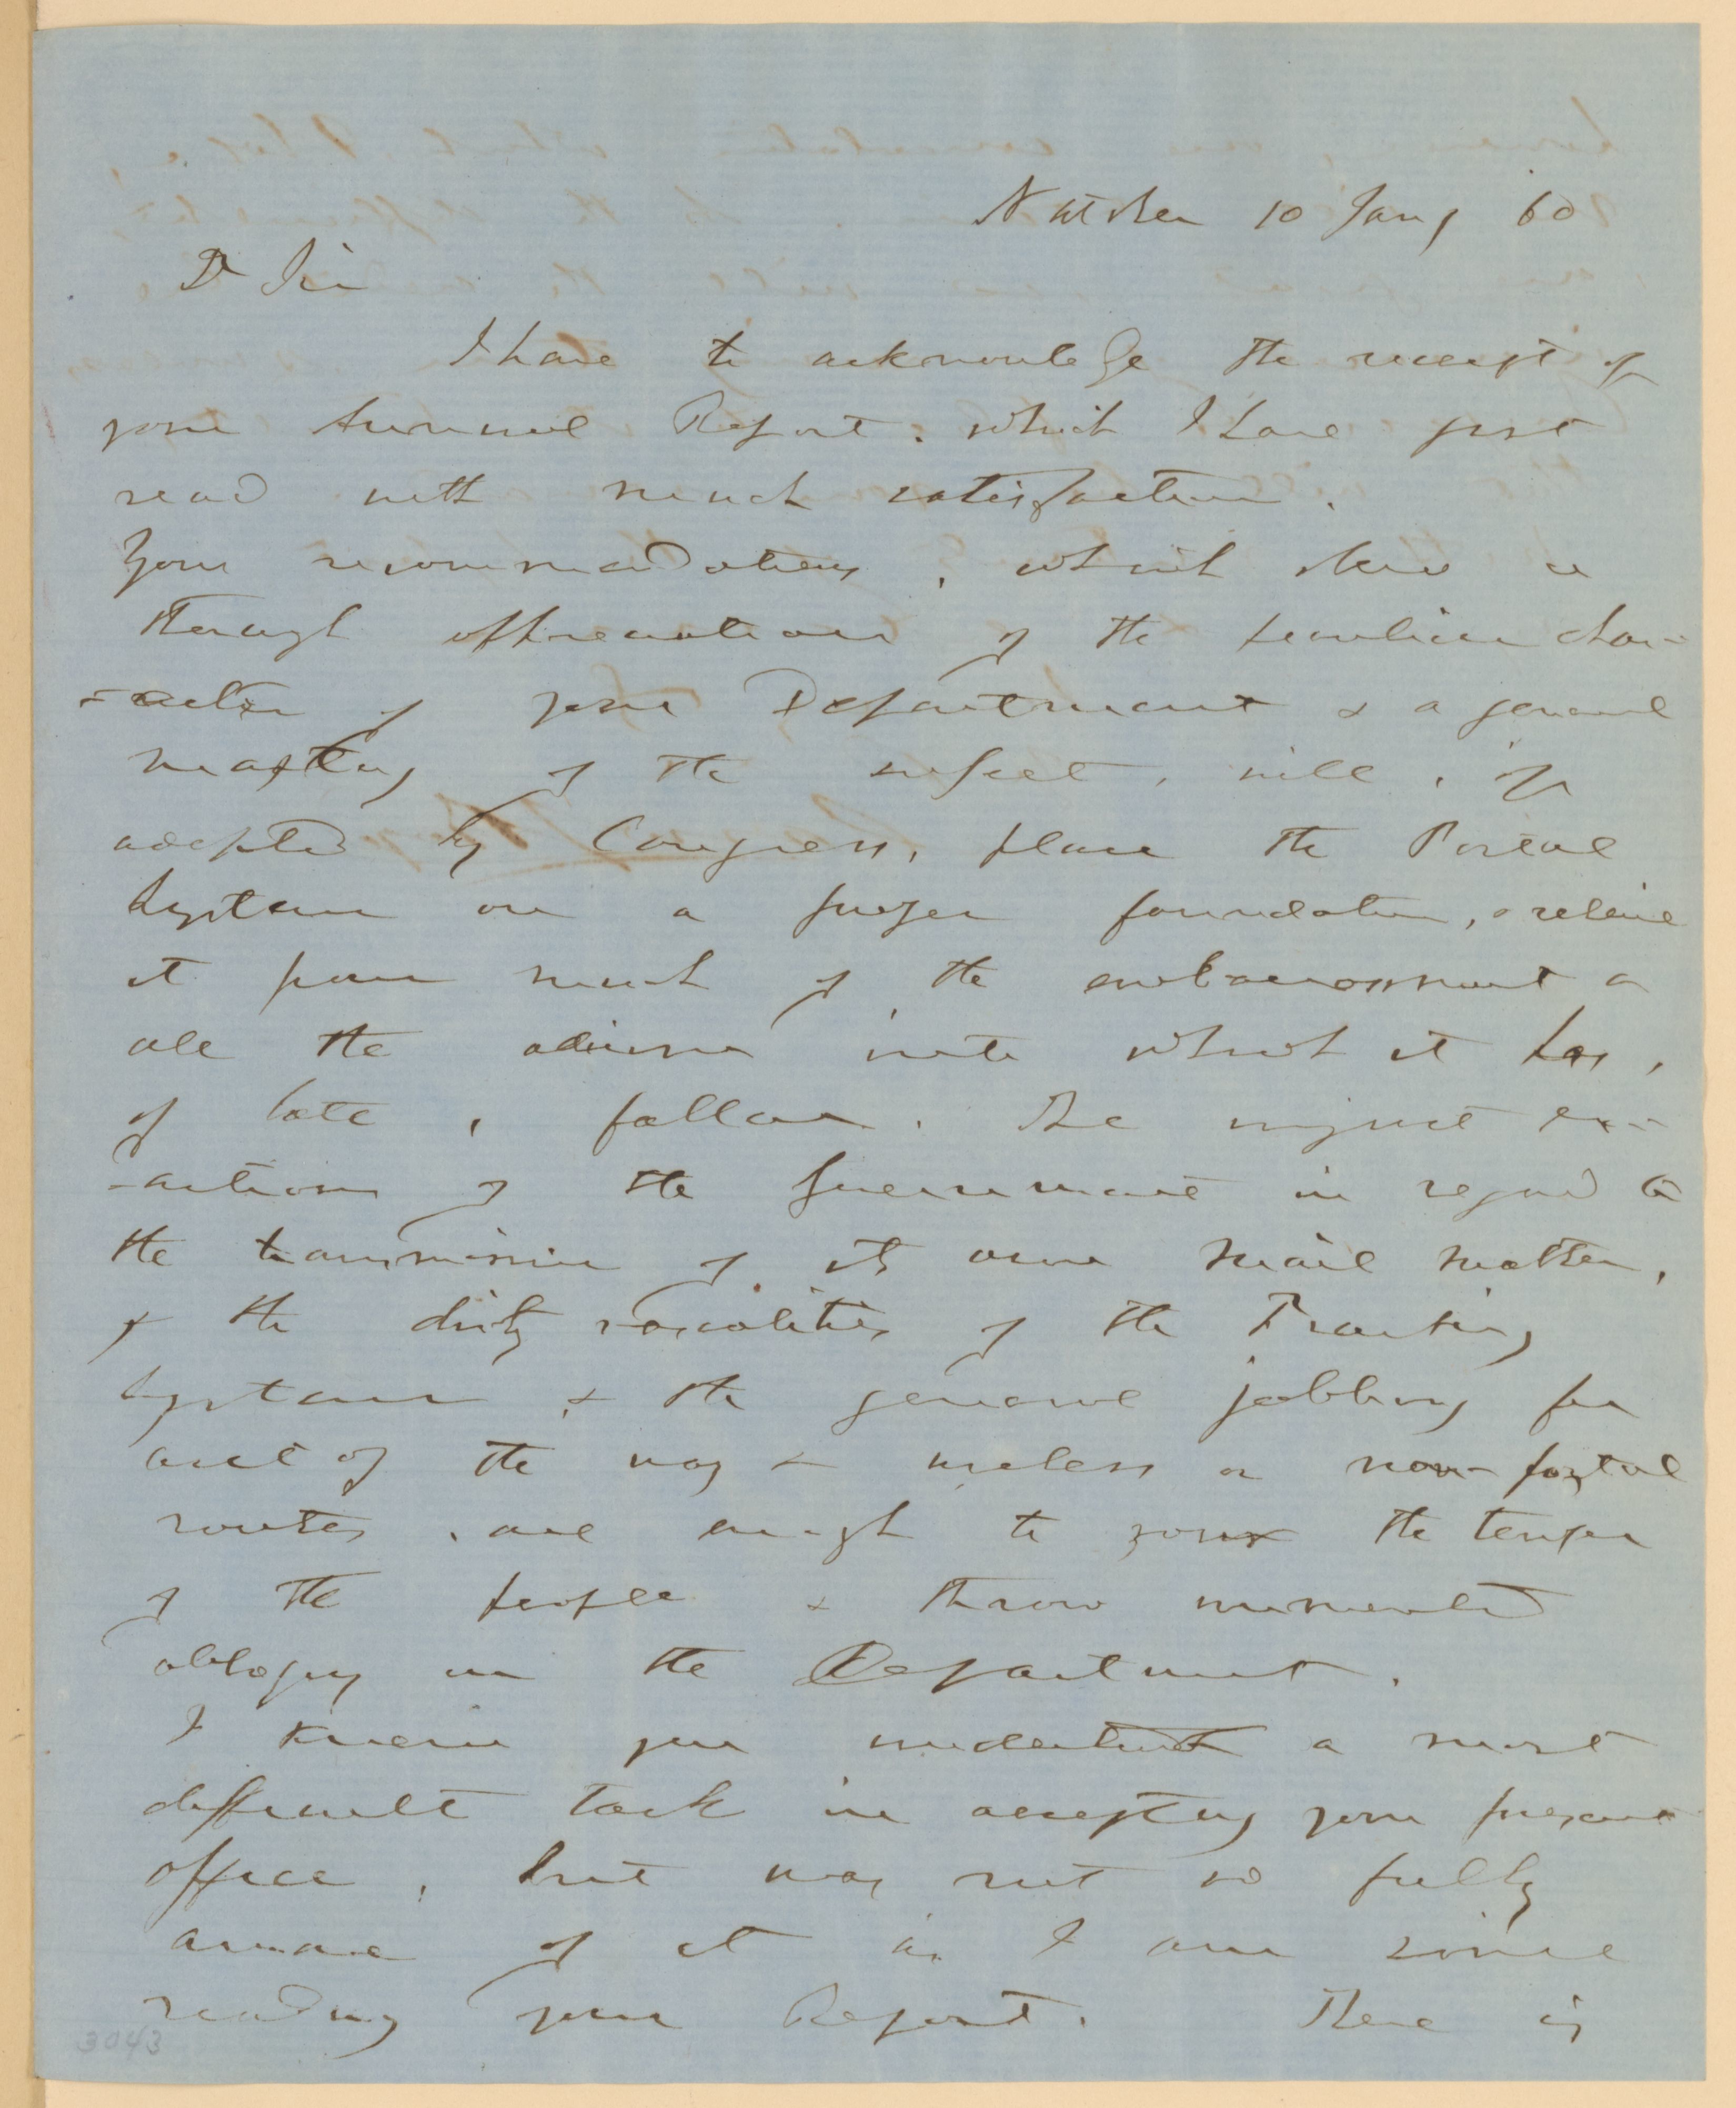 Natchez 10 Jany 60
Dr Sir
I have to acknowledge the receipt of
your Annual Report. which I have just
read with much satisfaction.
Your recommendations, which shew a
thorough appreciation of the peculiar char-
-acter of your Department & a general
mastery of the subject, will, if
adopted by Congress, place the Postal
System on a proper foundation, & relieve
it from much of the embarrassment &
all the odium into which it has,
of late, fallen. The unjust ex-
-actions of the Government in regard to
the transmission of its own mail matter,
& the dirty rascalities of the Franking
System & the general jobbing for
out of the way & useless or non-postal
routes, are enough to the temper
of the people & throw unmerited
obloquy on the Department.
I knew you undertook a most
difficult task in accepting your present
office, but was not so fully
aware of it as I am since
reading your Report. There is
3043